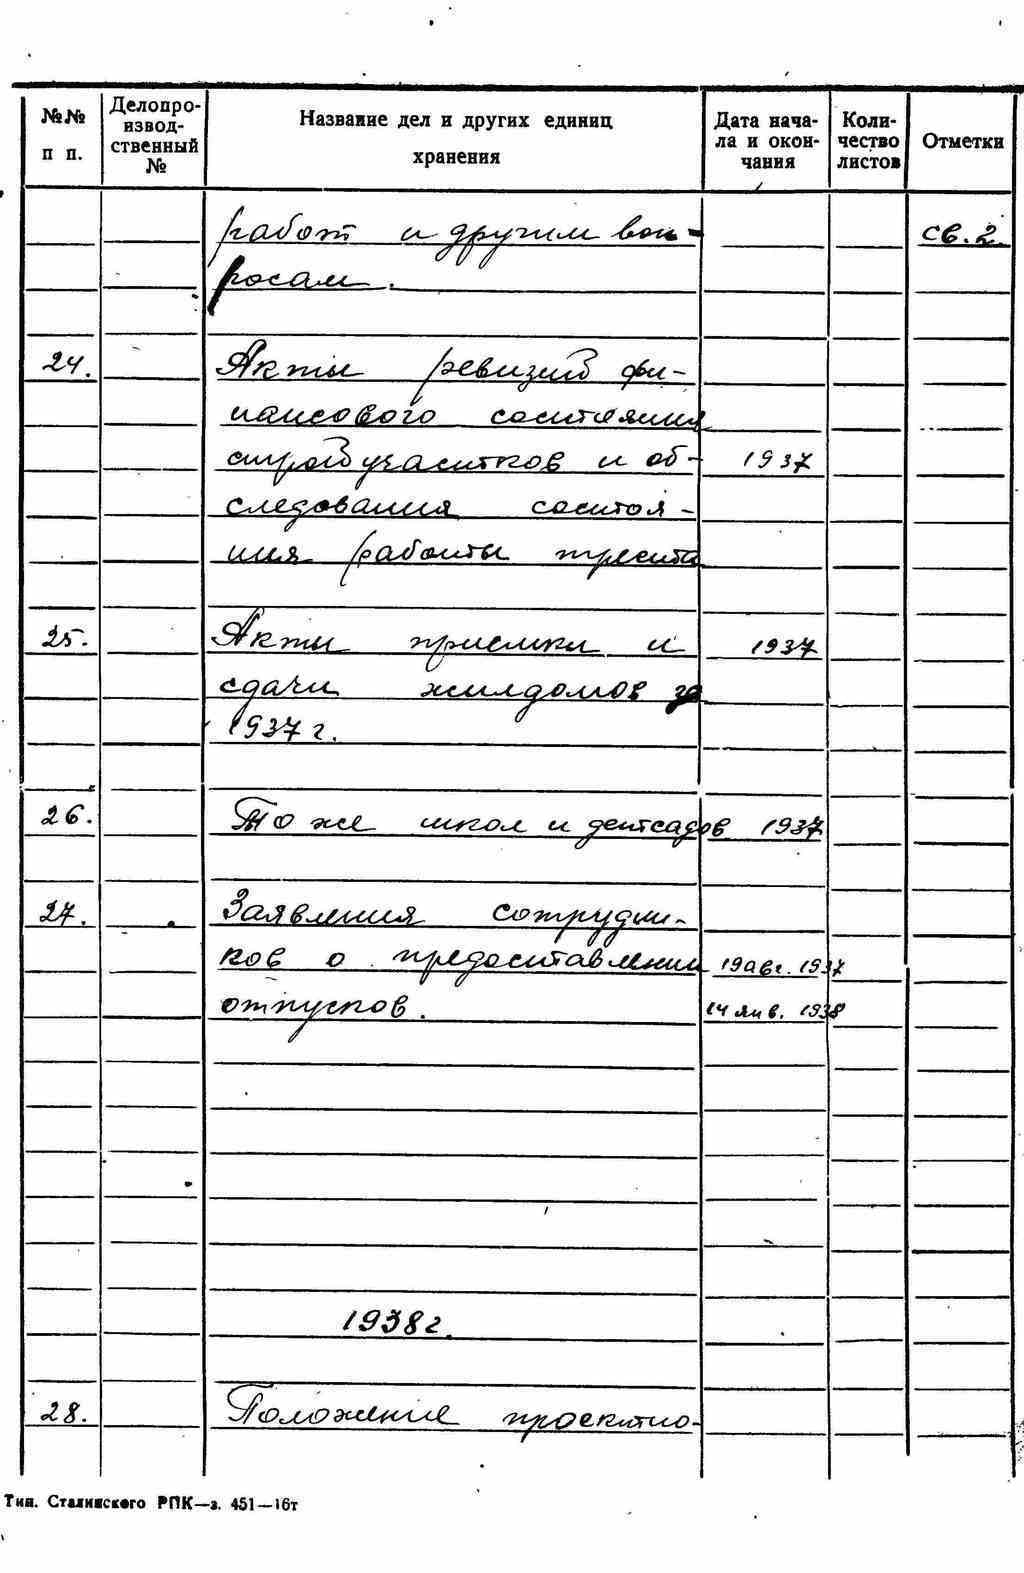 №№ п п.
Делопро-
извод-
ственный
№
Название дел и других единиц
хранения
Дата нача-
ла и окон-
чания
Коли-
чество
листов
Отметки
работ и другим воп- св. 2.
росам.
24. Акты ревизий фи-
нансового состояния
стройучастков и об- 1937
следования состоя-
ния работы треста
25. Акты приемки и 1937
сдачи жилдомов за
1937 г.
26. То же школ и детсадов 1937
27. Заявления сотрудни-
ков о предоставлении 19 авг. 1937
отпусков. 14 янв. 1938
1938 г.
28. Положение проектно-
Тип. Сталинского РПК—з. 451—16т